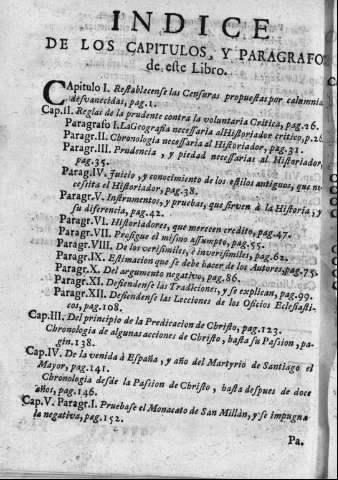 INDICE
DE LOS CAPITULOS, Y PARAGRAFO
de este Libro.
CApitulo I. Restablecense las Censuras propuestas por calumnia
desvanecidas, pag.1.
Cap.II. Reglas de la prudente contra la voluntaria Critica, pag.26.
Paragrafo I. La Geografia necessaria al Historiador critico, p.26
Paragr.II. Chronologia necessaria al Historiador, pag.31.
Paragr.III. Prudencia, y piedad necessarias al Historiador,
pag.35.
Parag.IV. Juicio, y conocimiento de los estilos antiguos, que ne
cessita el Historiador, pag.38.
Paragr.V. Instrumentos, y pruebas, que sirven à la Historia, y
su diferencia, pag.42.
Paragr.VI. Historiadores, que merecen credito, pag.47.
Paragr.VII. Prosigue el mismo assumpto, pag.55.
Paragr.VIII. De los versimiles, è inverisimiles, pag.62.
Paragr.IX. Estimacion que se debe hacer de los Autores, pag.75.
Paragr.X. Del argumento negativo, pag.86.
Paragr.XI. Defiendense las Tradiciones, y se explican, pag.99.
Paragr.XII. Defiendense las Lecciones de los Oficios Eclesiasti-
cos, pag.108.
Cap.III. Del principio de la Predicacion de Christo, pag.123.
Chronologia de algunas acciones de Christo, hasta su Passion, pa-
gin.138.
Cap.IV. De la venida à España, y año del Martyrio de Santiago el
Mayor, pag.141.
Chronologia desde la Passion de Christo, hasta despues de doce
años, pag.146.
Cap.V. Paragr.I. Pruebase el Monacato de San Millàn, y se impugna
la negativa, pag.152.
Pa.